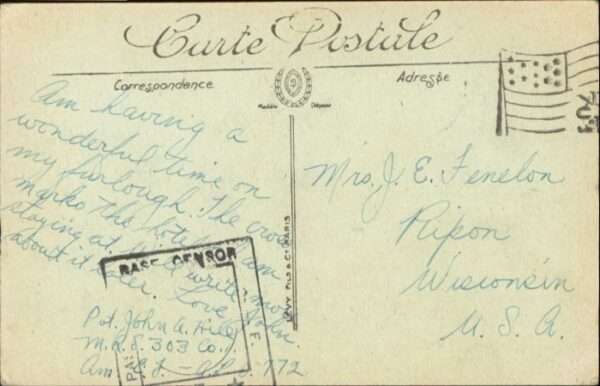 Carte Postale
Correspondance
Adresse
Modèle Déposé
Am having a
wonderful time on
my furlough. The cross
marks the hotel I am
staying at. Will write more
about it later. Love John.
Pvt. John A.
M.R.S. 303 Co.
Am. E.F. - A.P.O. 772
BASE CENSOR
LEVY FILS & Cie PARIS
Mrs. J. E. Fenelon
Ripon
Wisconsin
U. S. A.